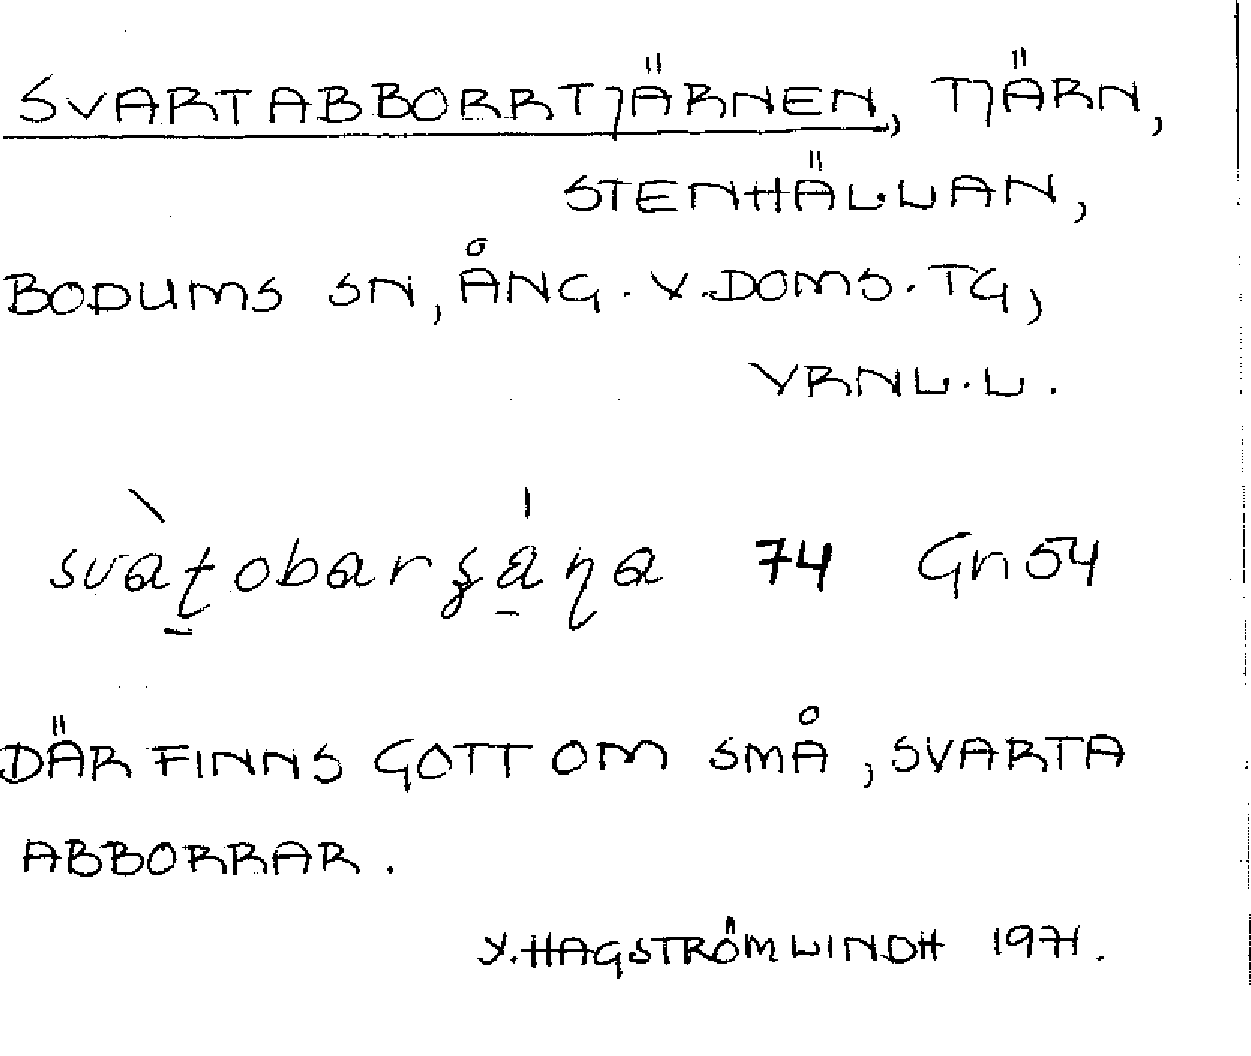 SVARTABBORRTJÄRNEN, TJÄRN,
STENHÄLLAN,
BODUMS SN, ÅNG. V. DOMS. TG,
VRNL.L.
74 Gn54
DÄR FINNS GOTT OM SMÅ, SVARTA
ABBORRAR.
Y. HAGSTRÖM LINDH 1971.